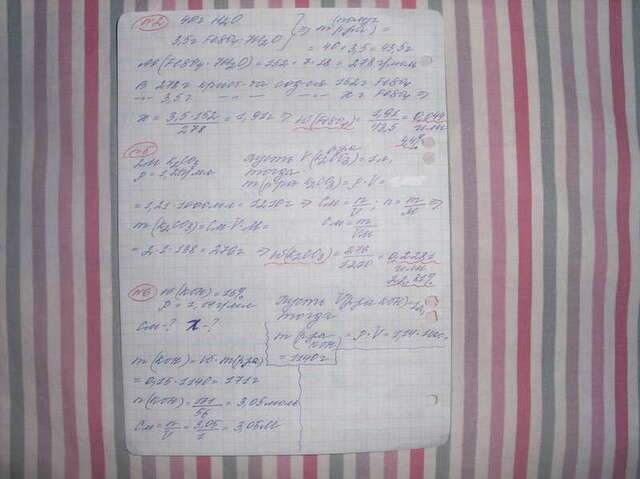 №2 40г H2O
3,5г FeSO4·7H2O } ⇒ m(р-ра) =
= 40+3,5 = 43,5г
M(FeSO4·7H2O) = 152+7·18 = 278г/моль
В 278г крист-та сод-ся 152г FeSO4
-"- 3,5г -"- -"- x г FeSO4 ⇒
x = 3,5·152/278 = 1,91г ⇒ W(FeSO4) = 1,91/43,5 = 0,044
или
4,4%
№5
2М K2CO3 пусть V(K2CO3) = 1л,
ρ = 1,21г/мл тогда
m(р-ра K2CO3) = ρ·V =
= 1,21·1000мл = 1210г ⇒ Cм = n/V; n = m/M ⇒
m(K2CO3) = Cм·V·M = Cм = m/VM
= 2·1·138 = 276г ⇒ W(K2CO3) = 276/1210 = 0,2281
или
22,81%
№6 W(KOH) = 15%
ρ = 1,14г/мл пусть V(р-ра KOH) = 1л,
тогда
Cм-? X-?
m(р-ра KOH) = ρ·V = 1,14·1000
= 1140г
m(KOH) = W·m(р-ра)
= 0,15·1140 = 171г
n(KOH) = 171/56 = 3,05моль
Cм = n/V = 3,05/1 = 3,05М